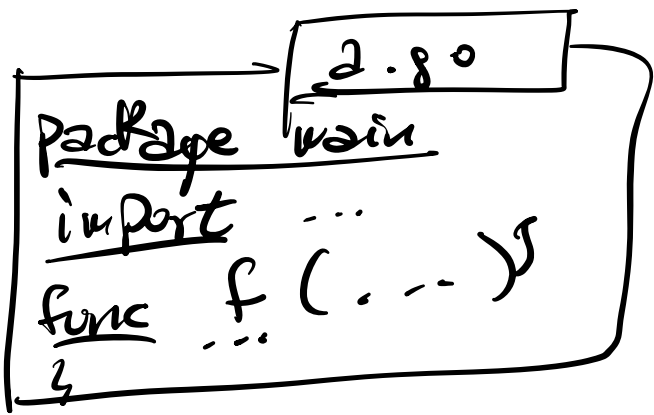 a.go
package main
import ...
func f (...) {
...
}